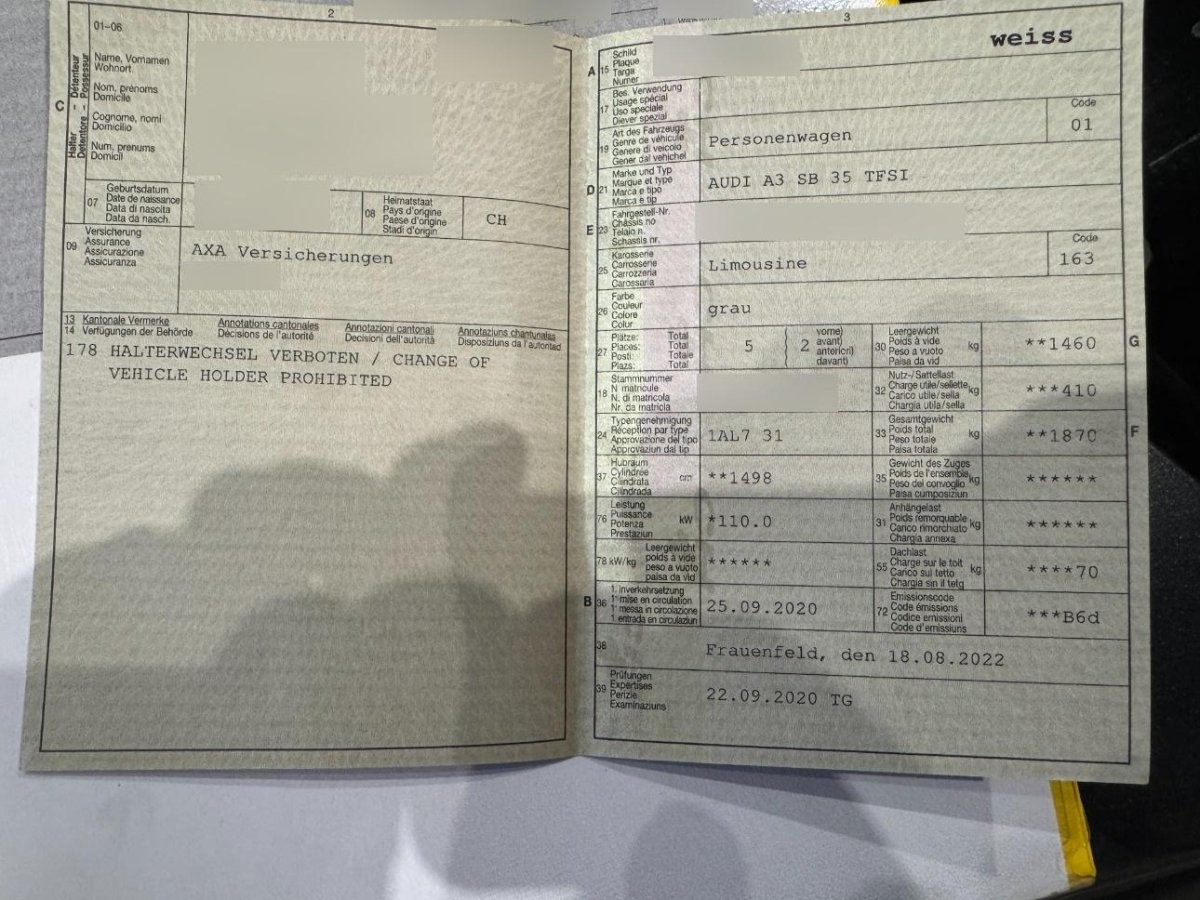 2
01–06
C
Halter – Détenteur
Detentore – Possessur
Name, Vornamen
Wohnort
Nom, prénoms
Domicile
Cognome, nomi
Domicilio
Num, prenums
Domicil
07
Geburtsdatum
Date de naissance
Data di nascita
Data da nasch.
08
Heimatstaat
Pays d'origine
Paese d'origine
Stadi d'origin
CH
09
Versicherung
Assurance
Assicurazione
Assicuranza
AXA Versicherungen
13 Kantonale Vermerke
14 Verfügungen der Behörde
Annotations cantonales
Décisions de l'autorité
Annotazioni cantonali
Decisioni dell'autorità
Annotaziuns chantunalas
Disposiziuns da l'autoritad
178 HALTERWECHSEL VERBOTEN / CHANGE OF
VEHICLE HOLDER PROHIBITED
3
weiss
A 15
Schild
Plaque
Targa
Numer
17
Bes. Verwendung
Usage spécial
Uso speciale
Diever spezial
19
Art des Fahrzeugs
Genre de véhicule
Genere di veicolo
Gener dal vehichel
Personenwagen
Code
01
D 21
Marke und Typ
Marque et type
Marca e tipo
Marca e tip
AUDI A3 SB 35 TFSI
E 23
Fahrgestell-Nr.
Châssis no
Telaio n.
Schassis nr.
25
Karosserie
Carrosserie
Carrozzeria
Carossaria
Limousine
Code
163
26
Farbe
Couleur
Colore
Colur
grau
27
Plätze: Total
Places: Total
Posti: Totale
Plazs: Total
5
( 2
vorne)
avant)
anteriori)
davant)
30
Leergewicht
Poids à vide
Peso a vuoto
Paisa da vid
kg
**1460
G
18
Stammnummer
N matricule
N. di matricola
Nr. da matricla
32
Nutz-/Sattellast
Charge utile/sellette
Carico utile/sella
Chargia utila/sella
kg
***410
24
Typengenehmigung
Réception par type
Approvazione del tipo
Approvaziun dal tip
1AL7 31
33
Gesamtgewicht
Poids total
Peso totale
Paisa totala
kg
**1870
F
37
Hubraum
Cylindrée
Cilindrata
Cilindrada
cm
**1498
35
Gewicht des Zuges
Poids de l'ensemble
Peso del convoglio
Paisa cumposiziun
kg
******
76
Leistung
Puissance
Potenza
Prestaziun
kW
*110.0
31
Anhängelast
Poids remorquable
Carico rimorchiato
Chargia annexa
kg
******
78 kW/kg
Leergewicht
poids à vide
peso a vuoto
paisa da vid
******
55
Dachlast
Charge sur le toit
Carico sul tetto
Chargia sin il tetg
kg
****70
B 36
1. Inverkehrsetzung
1' mise en circulation
1' messa in circolazione
1. entrada en circulaziun
25.09.2020
72
Emissionscode
Code émissions
Codice emissioni
Code d'emissiuns
***B6d
38
Frauenfeld, den 18.08.2022
39
Prüfungen
Expertises
Perizie
Examinaziuns
22.09.2020 TG